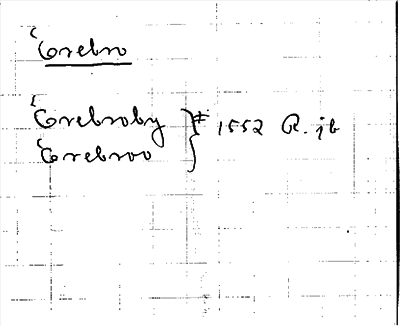 Örebro
Örebroby
Örebroo } # 1552 R. jb